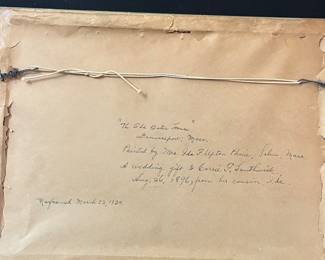 "The Old Bates Farm"
Danversport, Mass.
Painted by Mrs. Ida F. Upton Paine, Salem, Mass
A wedding gift to Carrie F. Southwick,
Aug. 26, 1896, from his cousin Ida
Reframed March 23, 1924